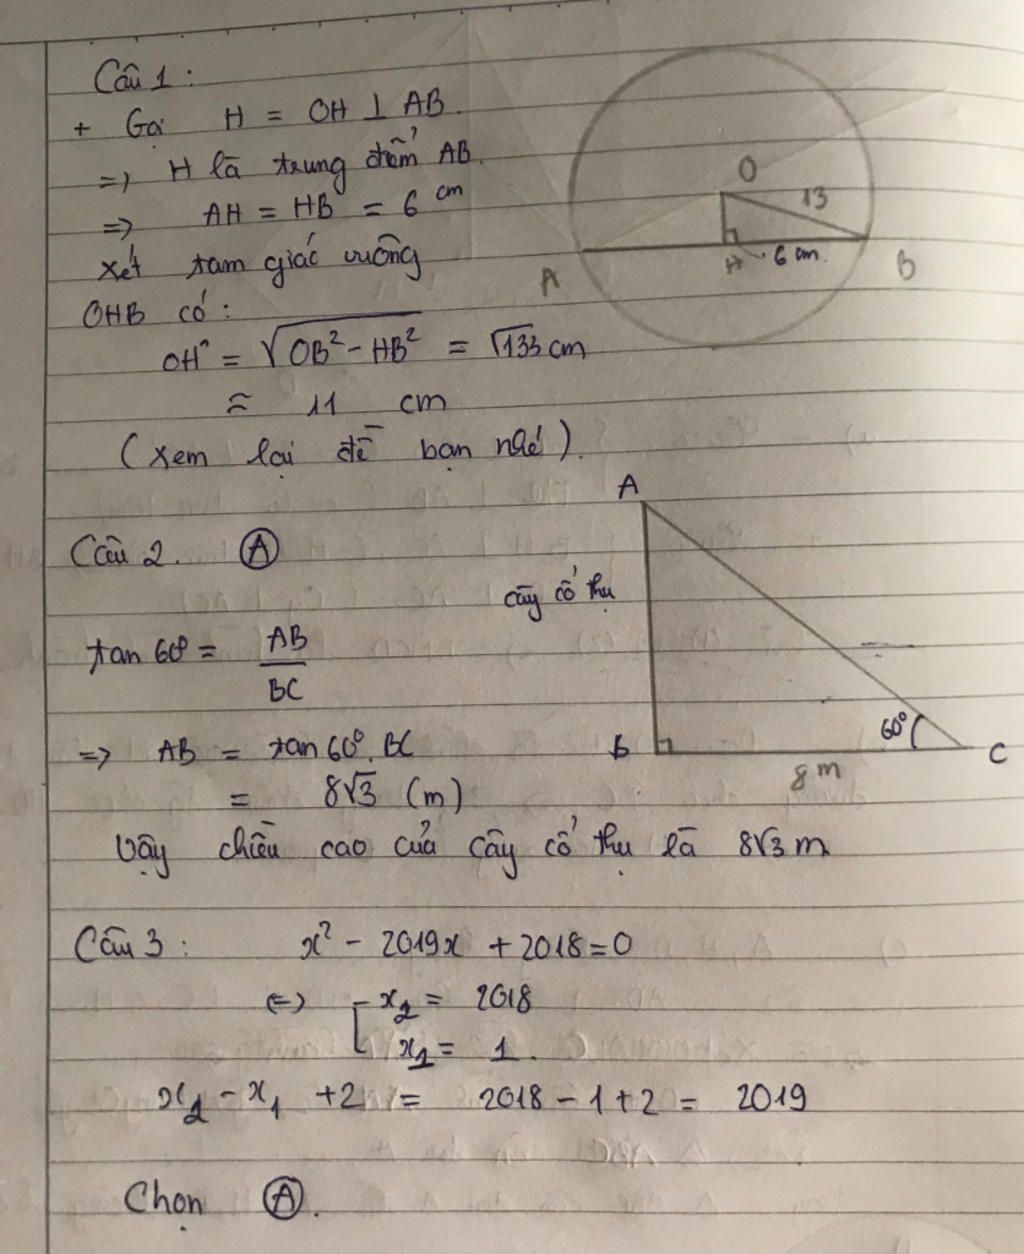 Câu 1:
+ Gọi H = OH ⊥ AB.
=> H là trung điểm AB.
=> AH = HB = 6 cm
Xét tam giác vuông
OHB có:
OH = √(OB² - HB²) = √133 cm
≈ 11 cm
(Xem lại đề bạn nhé).
O
13
A
H
6 cm.
B
Câu 2. Ⓐ
tan 60° = AB/BC
=> AB = tan 60°. BC
= 8√3 (m)
Vậy chiều cao của cây cổ thụ là 8√3 m
A
cây cổ thụ
B
60°
C
8 m
Câu 3: x² - 2019x + 2018 = 0
<=> [ x₂ = 2018
x₁ = 1.
x₂ - x₁ + 2 = 2018 - 1 + 2 = 2019
Chọn Ⓐ.